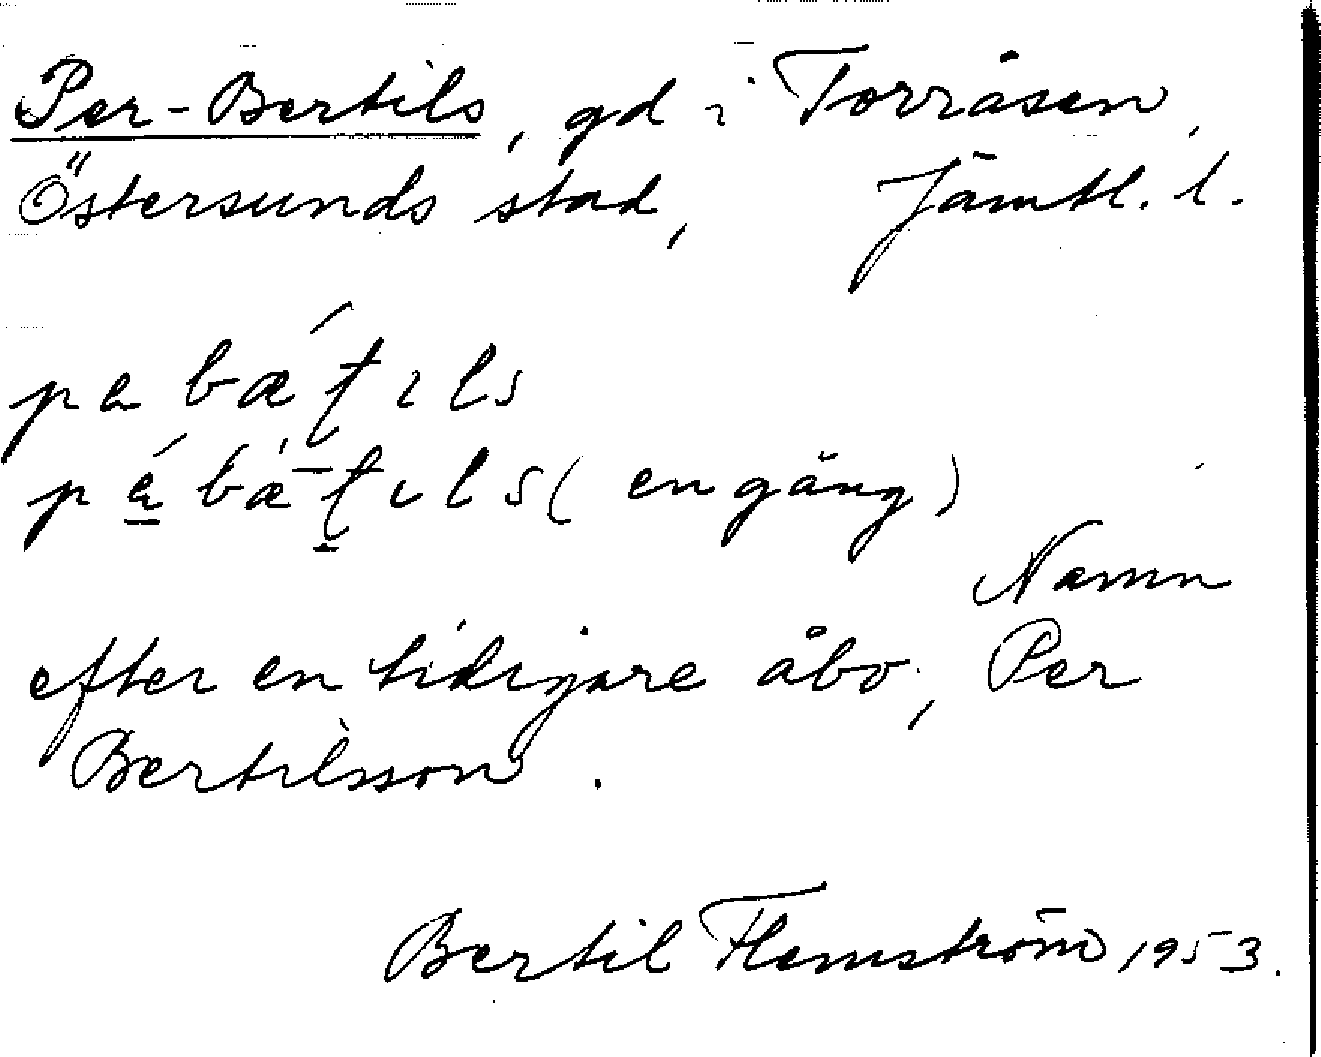 Per-Bertils, gd i Torråsen,
Östersunds stad, Jämtl. l.
pa bǽʈıls
pá bæ̀ʈıls (en gång)
Namn
efter en tidigare åbo, Per
Bertilsson.
Bertil Flemström 1953.